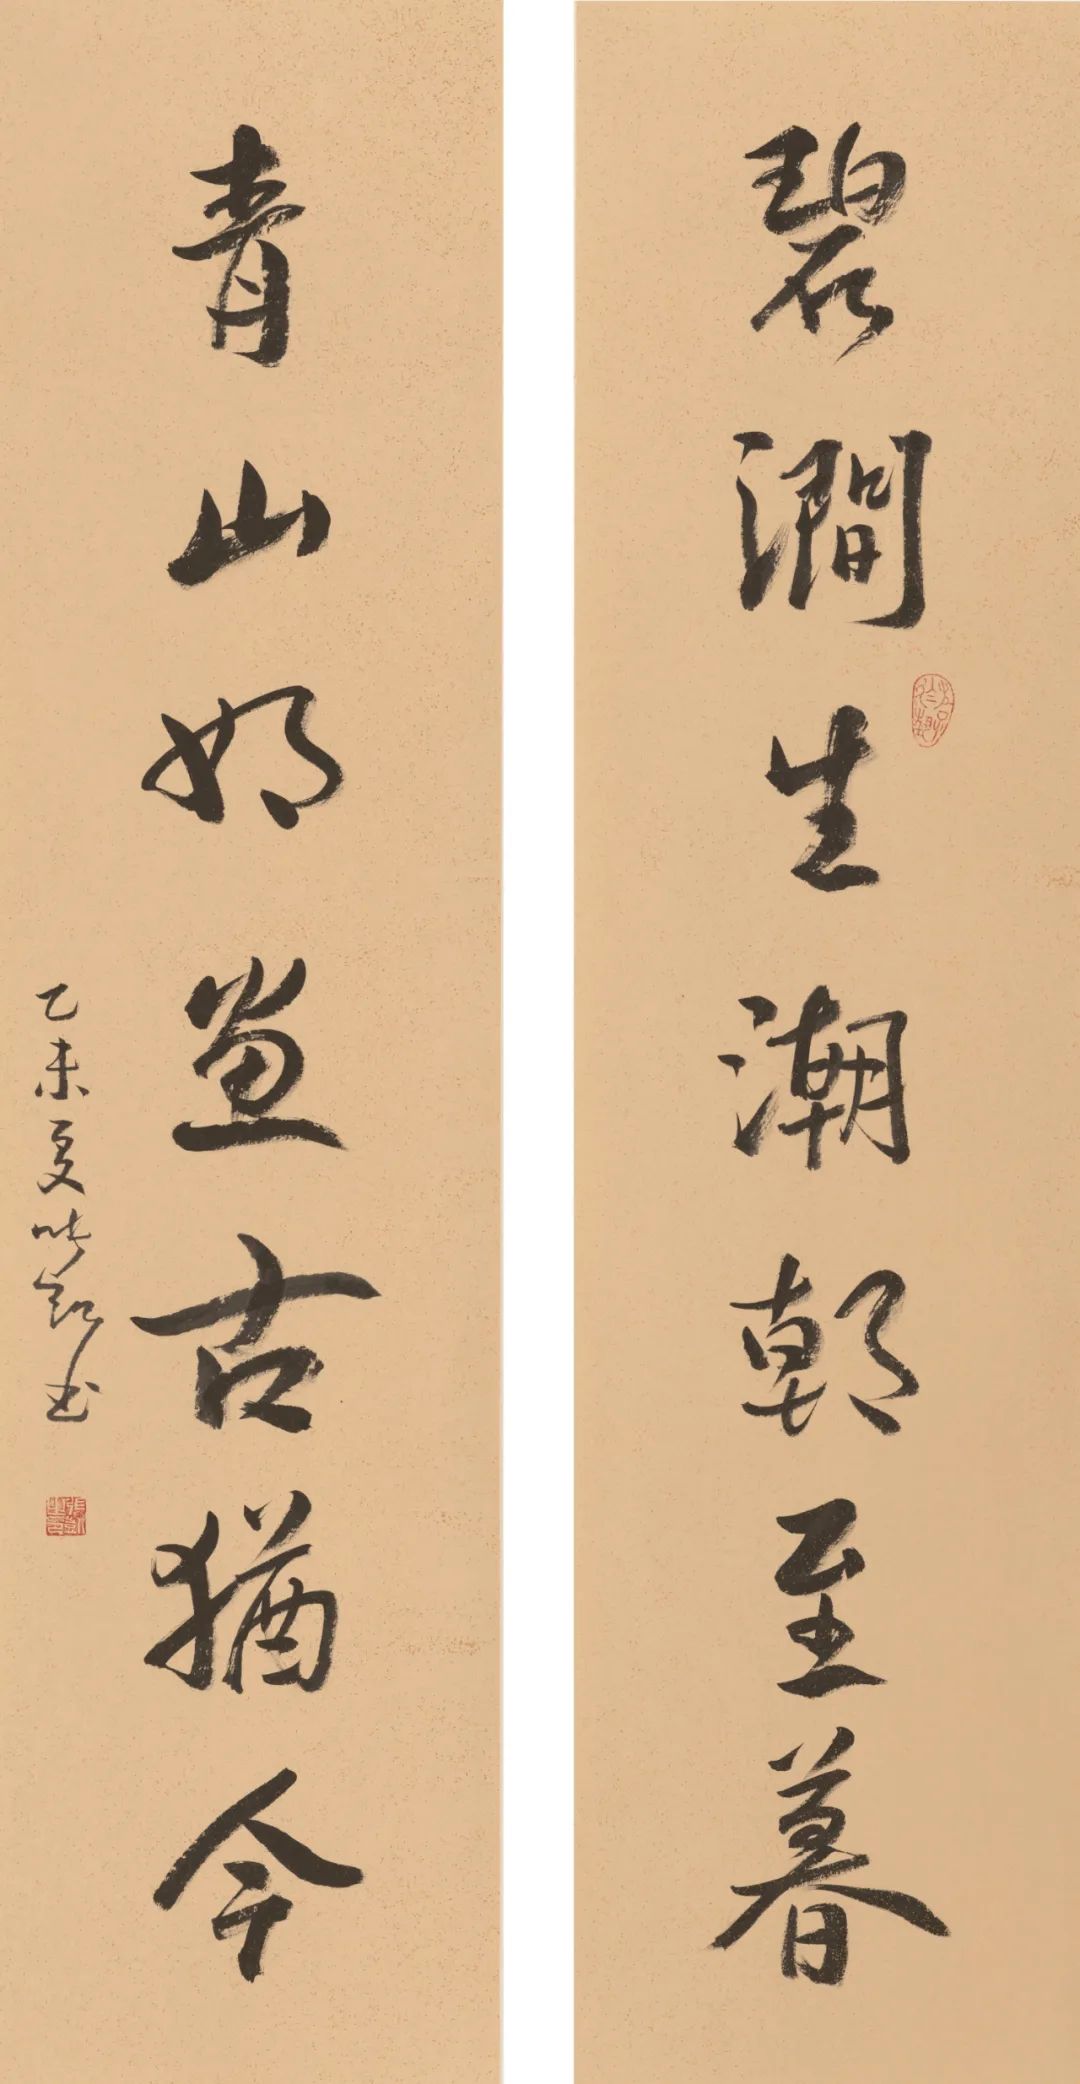 碧澗生潮朝至暮
青山如畫古猶今
乙未夏
書